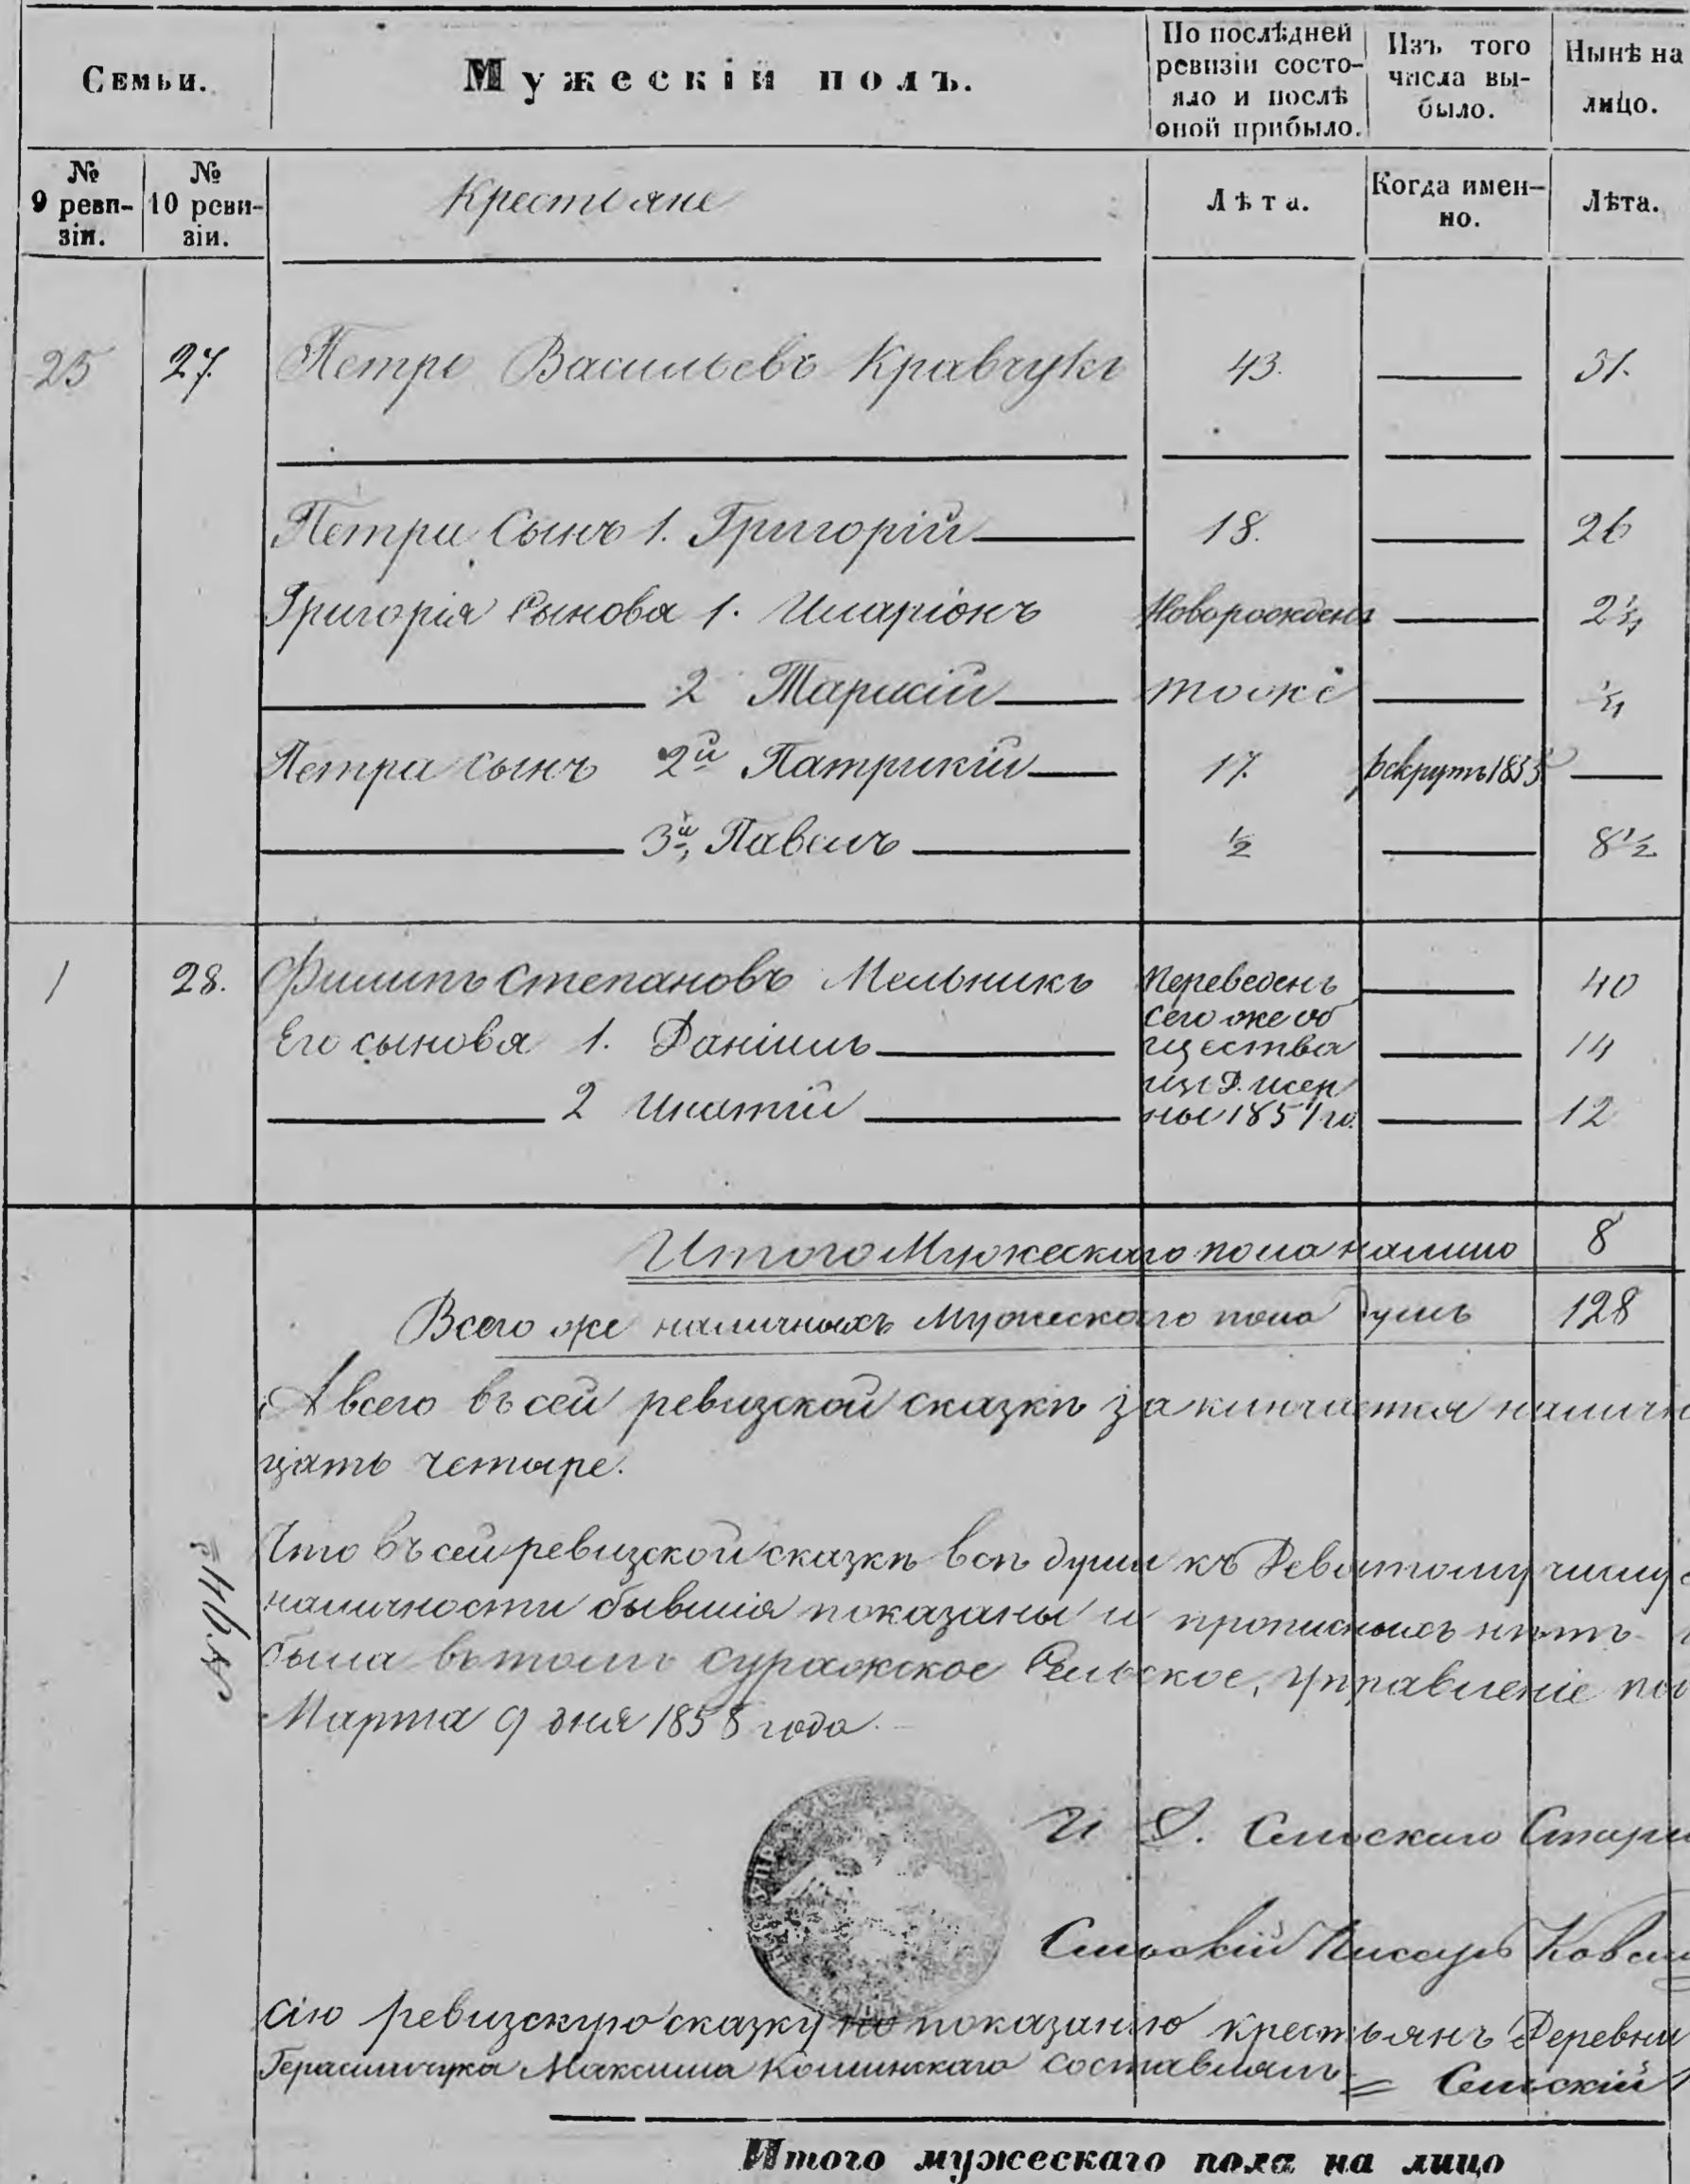 Семьи. Мужескій полъ. По послѣдней ревизіи состояло и послѣ оной прибыло. Изъ того числа выбыло. Нынѣ на лицо.
№ 9 ревизіи. № 10 ревизіи. Крестьяне Лѣта. Когда именно. Лѣта.
25 27. Петръ Васильевъ Кравчукъ 43. 31.
Петра Сынъ 1. Григорій 18. 26
Григорія Сыновья 1. Иларіонъ Новорожденъ 2¼
2 тоже
Петра сынъ 2й Патрикій 17. рекрутъ 1855
3й, Павелъ ½ 8½
1 28. Филипъ Степановъ Мельникъ Переведенъ 40
сего же об
Его сыновя 1. Даніилъ щества 14
изъ Д.
2 Игнатій 12
Итого Мужескаго пола налицо 8
Всего же наличныхъ Мужескаго пола душъ 128
А всего въ сей ревизской сказкѣ заключается наличн
цять четыре.
Что въ сей ревизской сказкѣ всѣ души къ Девятому числу
наличности бывшія показаны и прописныхъ нѣтъ
была вътомъ Суражское Сельское, Управленіе по
Марта 9 дня 1858 года.
И Д. Сельскаго Стар
Сельскій Писарь
сію ревизскую сказку по показанію крестьянъ Деревни
Герасимчука Максима составлялъ = Сельскій
Итого мужескаго пола на лицо